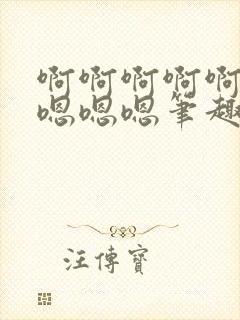 啊啊啊啊啊
嗯嗯嗯笔趣
汪傳寶